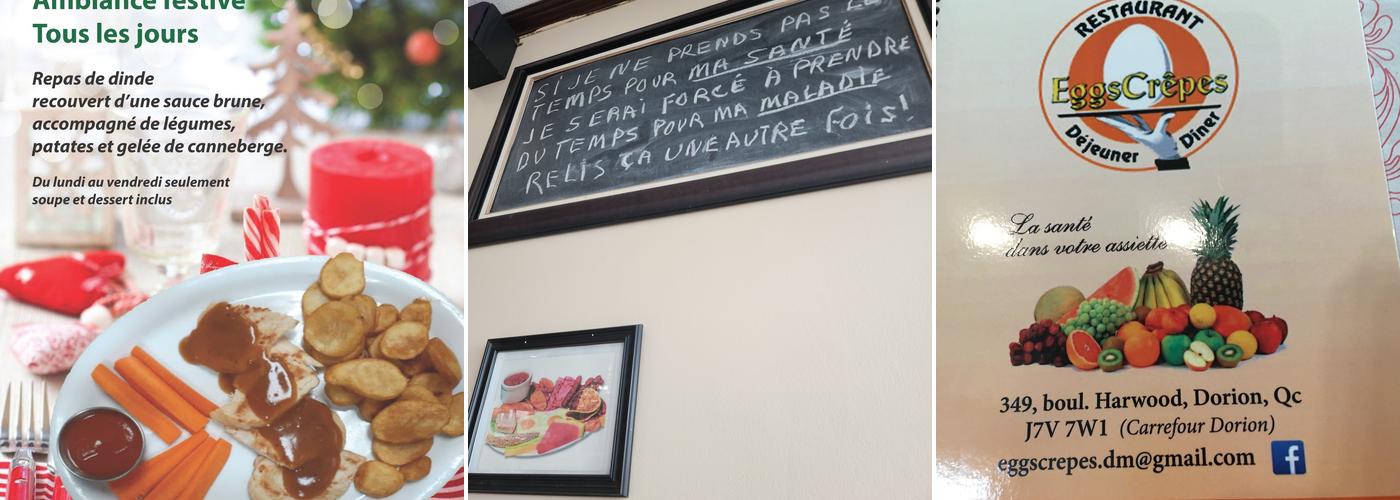 Ambiance festive
Tous les jours
Repas de dinde
recouvert d'une sauce brune,
accompagné de légumes,
patates et gelée de canneberge.
Du lundi au vendredi seulement
soupe et dessert inclus
SI JE NE PRENDS PAS LE
TEMPS POUR MA SANTÉ
JE SERAI FORCÉ À PRENDRE
DU TEMPS POUR MA MALADIE
RELIS ÇA UNE AUTRE FOIS!
RESTAURANT
EggsCrêpes
Déjeuner Dîner
La santé
dans votre assiette
349, boul. Harwood, Dorion, Qc
J7V 7W1 (Carrefour Dorion)
eggscrepes.dm@gmail.com f